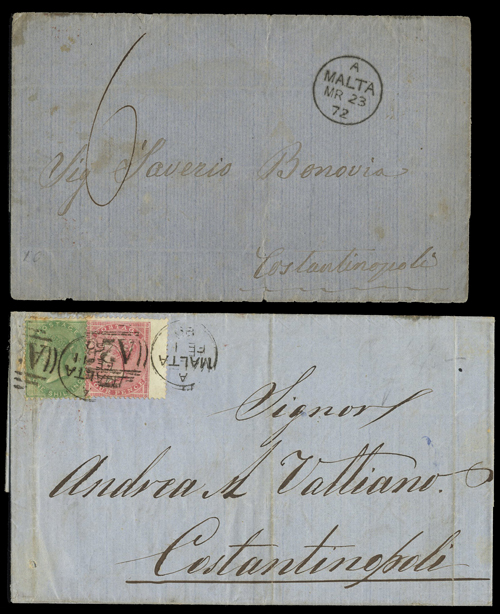 A
MALTA
MR 23
72
6
Sig Saverio Bonovia
Costantinopoli
10
A
MALTA
FE 11
Signor
Andrea M Valliano.
Costantinopoli